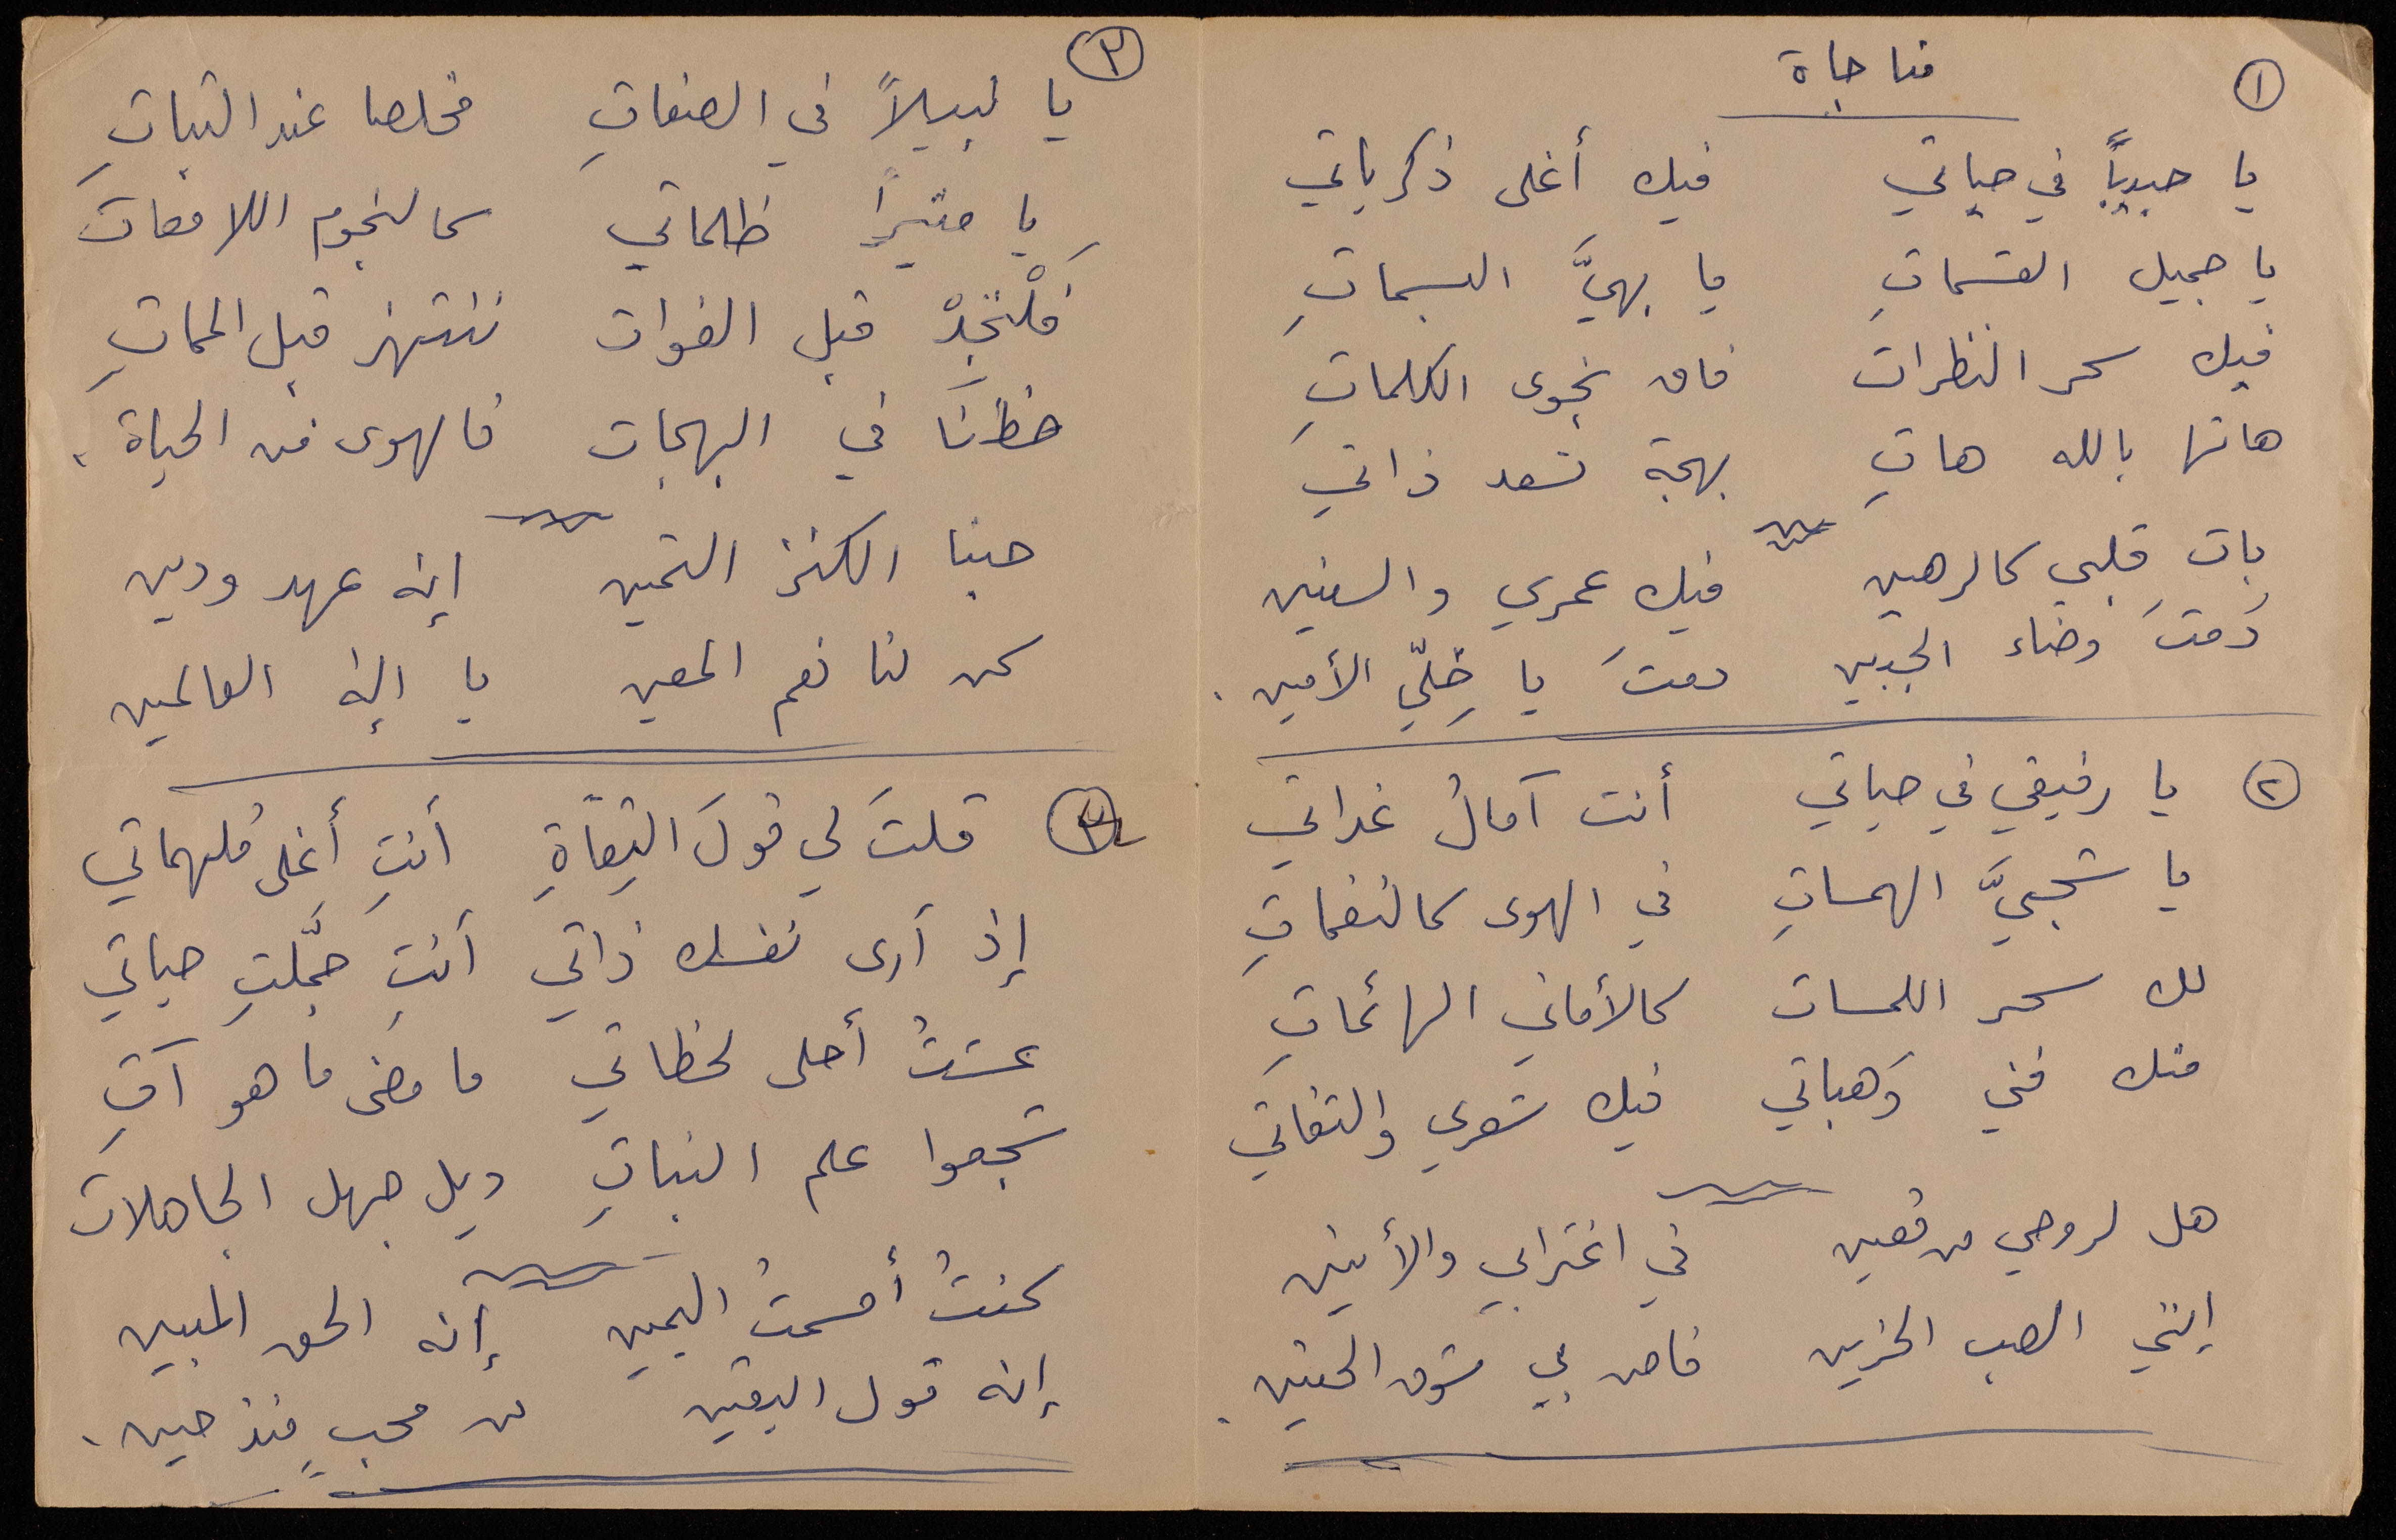 مناجاة
①
يا حبيبًا في حياتي فيك أغلى ذكرياتي
يا جميل القسماتِ يا بهيَّ البسماتِ
فيك سحر النظرات فاق نجوى الكلماتِ
هاتها بالله هاتِ بهجة تسعد ذاتي
بات قلبي كالرهين فيك عمري والسنين
دُمتَ وضاء الجبين دمتَ يا خِلّي الأمين.
② يا رفيقي في حياتي أنت آمالُ غداتي
يا شجيَّ الهمساتِ في الهوى كالنغماتِ
لك سحر اللمسات كالأماني الهائماتِ
منك فني وَهباتي فيك شعري والتفاتي
هل لروحي من معين في اغترابي والأنين
إنني الصب الحزين فاض بي شوق الحنين.
③
يا نبيلاً في الصفاتِ مخلصا عند الثباتِ
يا منيرًا ظلماتي كالنجوم اللامعات
فلْنَجِدْ قبل الفوات ننتهز قبل المماتِ
حظنا في البهجات فالهوى من الحياة.
حبنا الكنز الثمين إنه عهد ودين
كن لنا نعم المعين يا إله العالمين
قلتَ لي قولَ الثِقاةِ أنتِ أغلى ملهماتي
إذ أرى نفسك ذاتي أنتِ جمَّلتِ حياتي
عشتُ أحلى لحظاتي ما مضى ما هو آتِ
شجعوا علم النباتِ ويل جهل الجاهلات
كنتُ أقسمتُ اليمين إنه الحق المبين
إنه قول اليقين من محبٍ منذ حين.